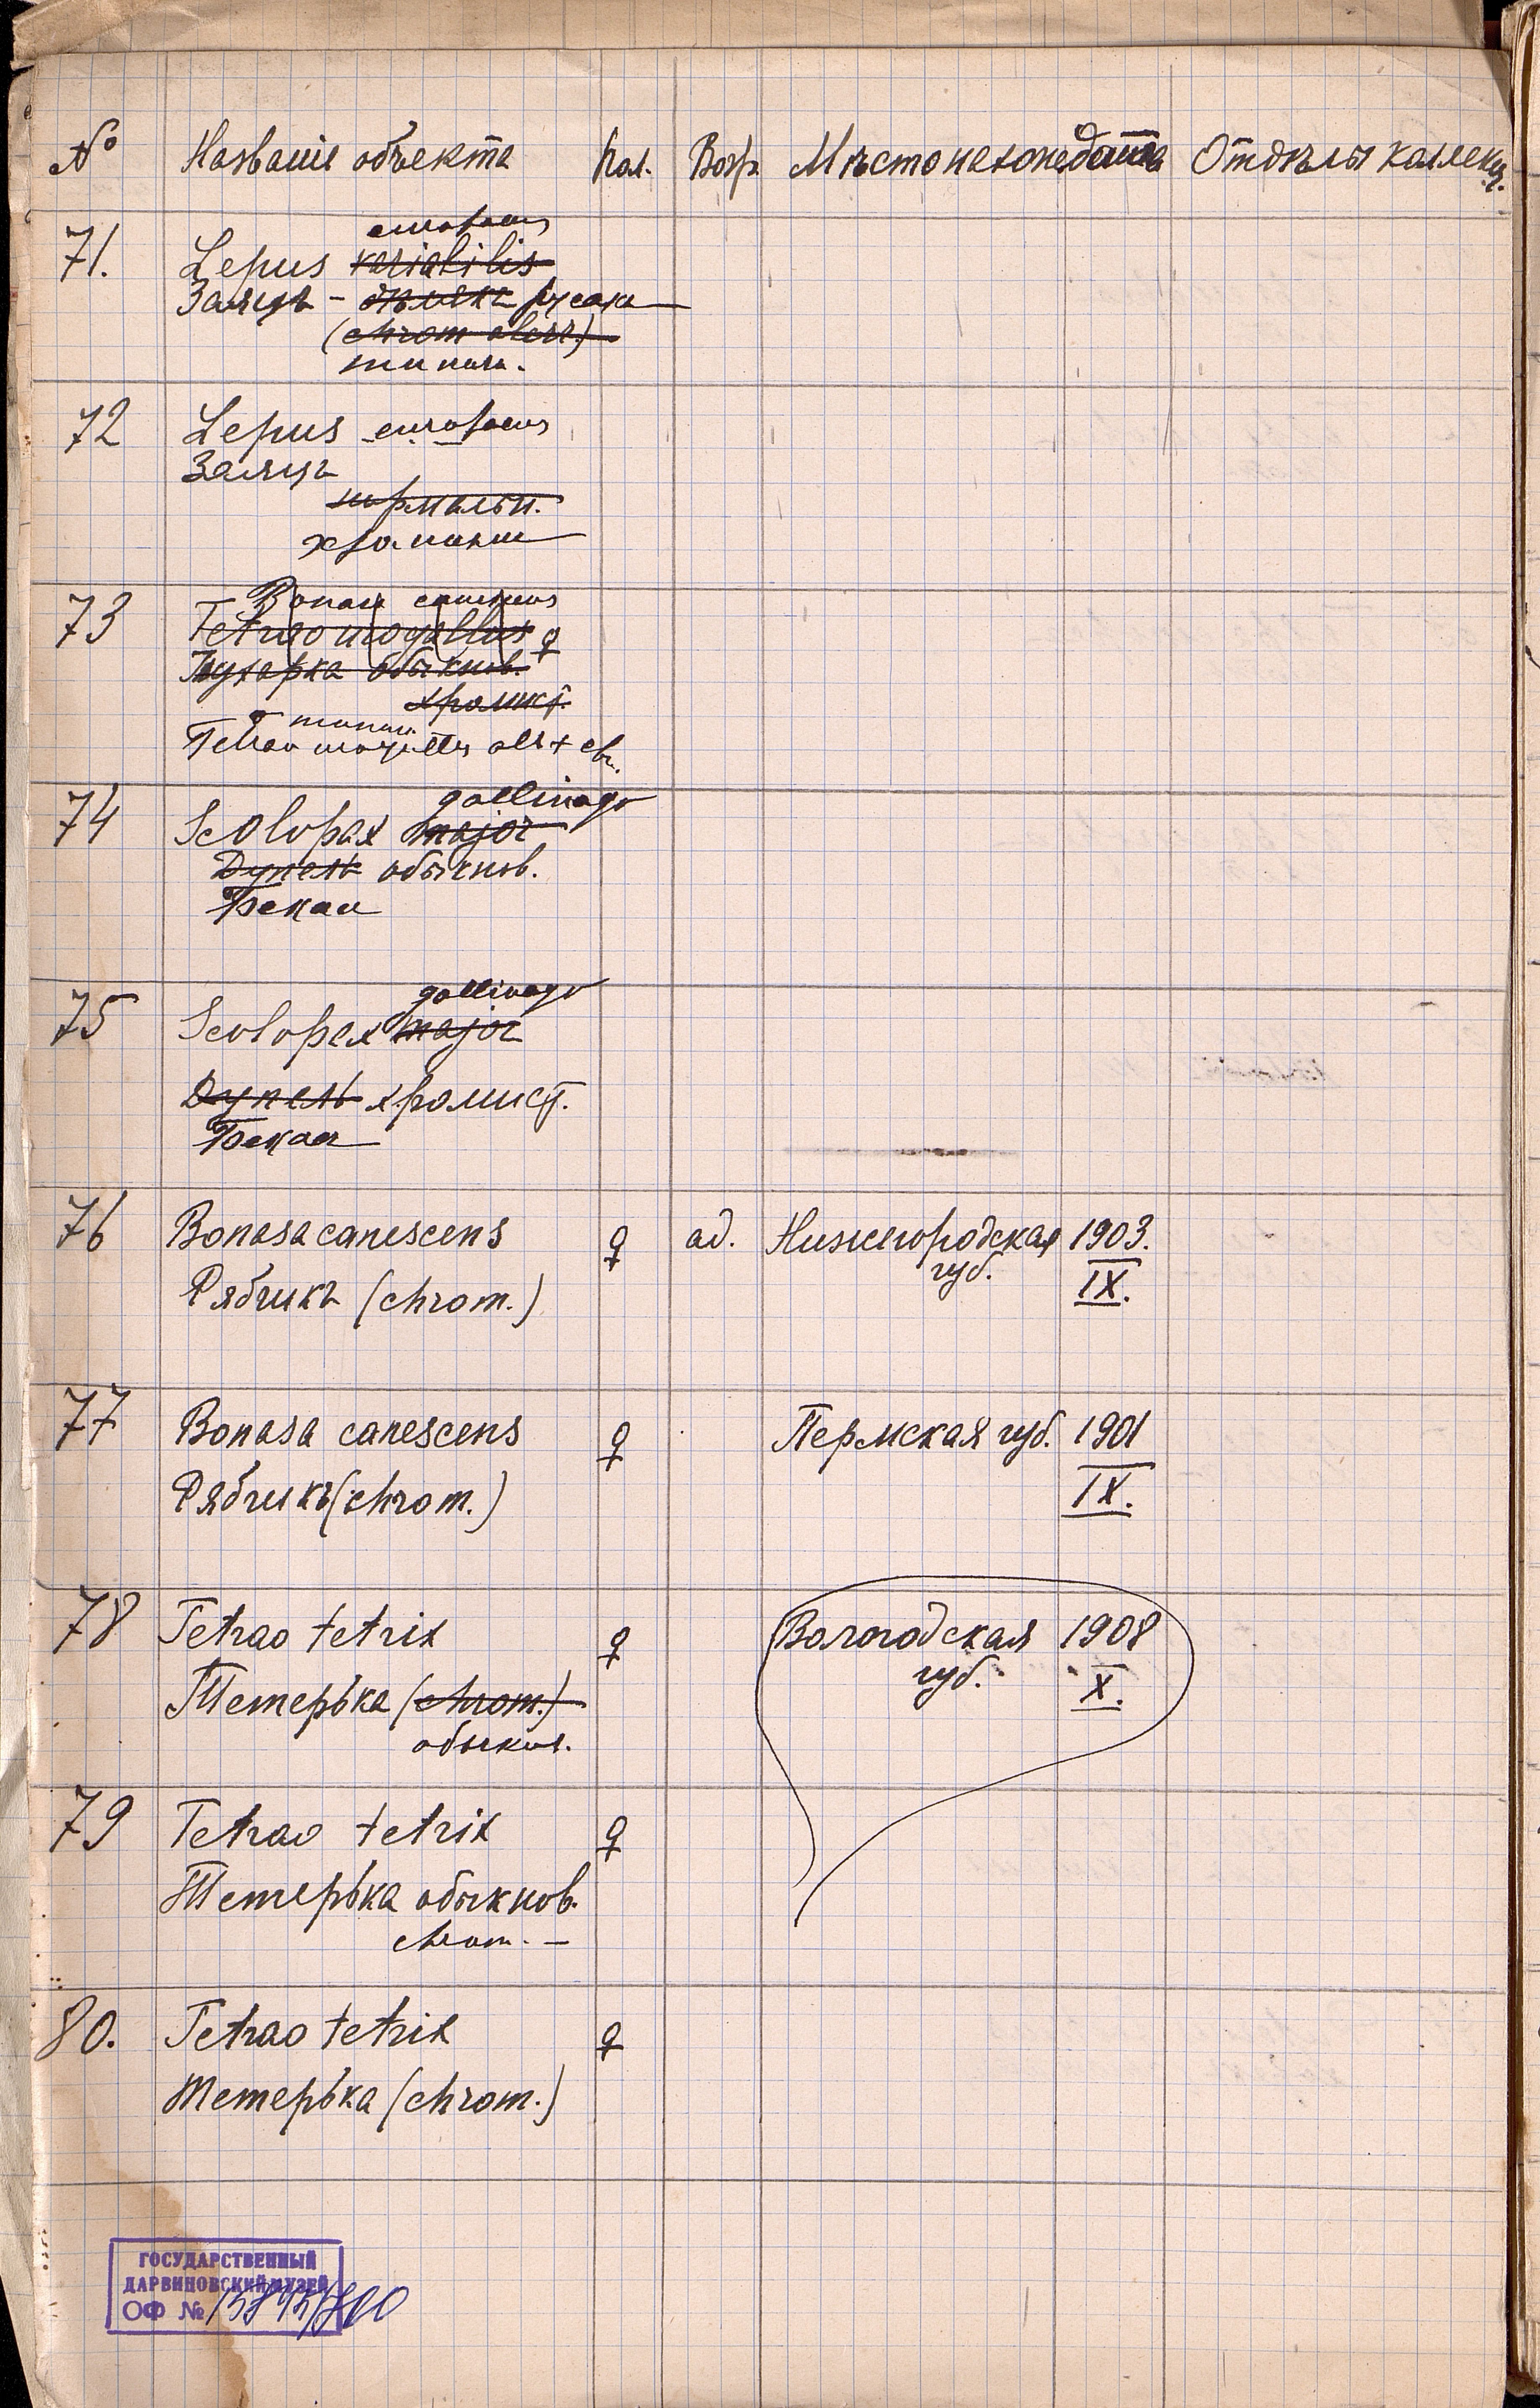 № Названіе объекта Пол. Возр. Мѣстонахожд дата Отдѣлы коллекц.
71.
europaeus
Lepus variabilis
Заяцъ - бѣлякъ русакъ
(chrom aberr.)
типичн.
72 Lepus europaeus
Заяцъ
нормальн.
73
Bonasa canescens
Tetrao urogallus ♀
Глухарка обыкнов.
хромист.
типичн.
Tetrao urogallus
74
gallinago
Scolopax major
Дупель обыкнов.
Бекас
75
gallinago
Scolopax major
Дупель хромист.
Бекас
76 Bonasa canescens ♀ ad. Нижегородская 1903.
губ. IX.
Рябчикъ (chrom.)
77 Bonasa canescens ♀ Пермская губ. 1901
Рябчикъ (chrom.) IX.
78 Tetrao tetrix ♀ Вологодская 1908
губ. X.
Тетерька (chrom.)
обыкн.
79 Tetrao tetrix ♀
Тетерька обыкнов.
chrom. -
80. Tetrao tetrix ♀
Тетерька (chrom.)
ГОСУДАРСТВЕННЫЙ
ДАРВИНОВСКИЙ МУЗЕЙ
ОФ №